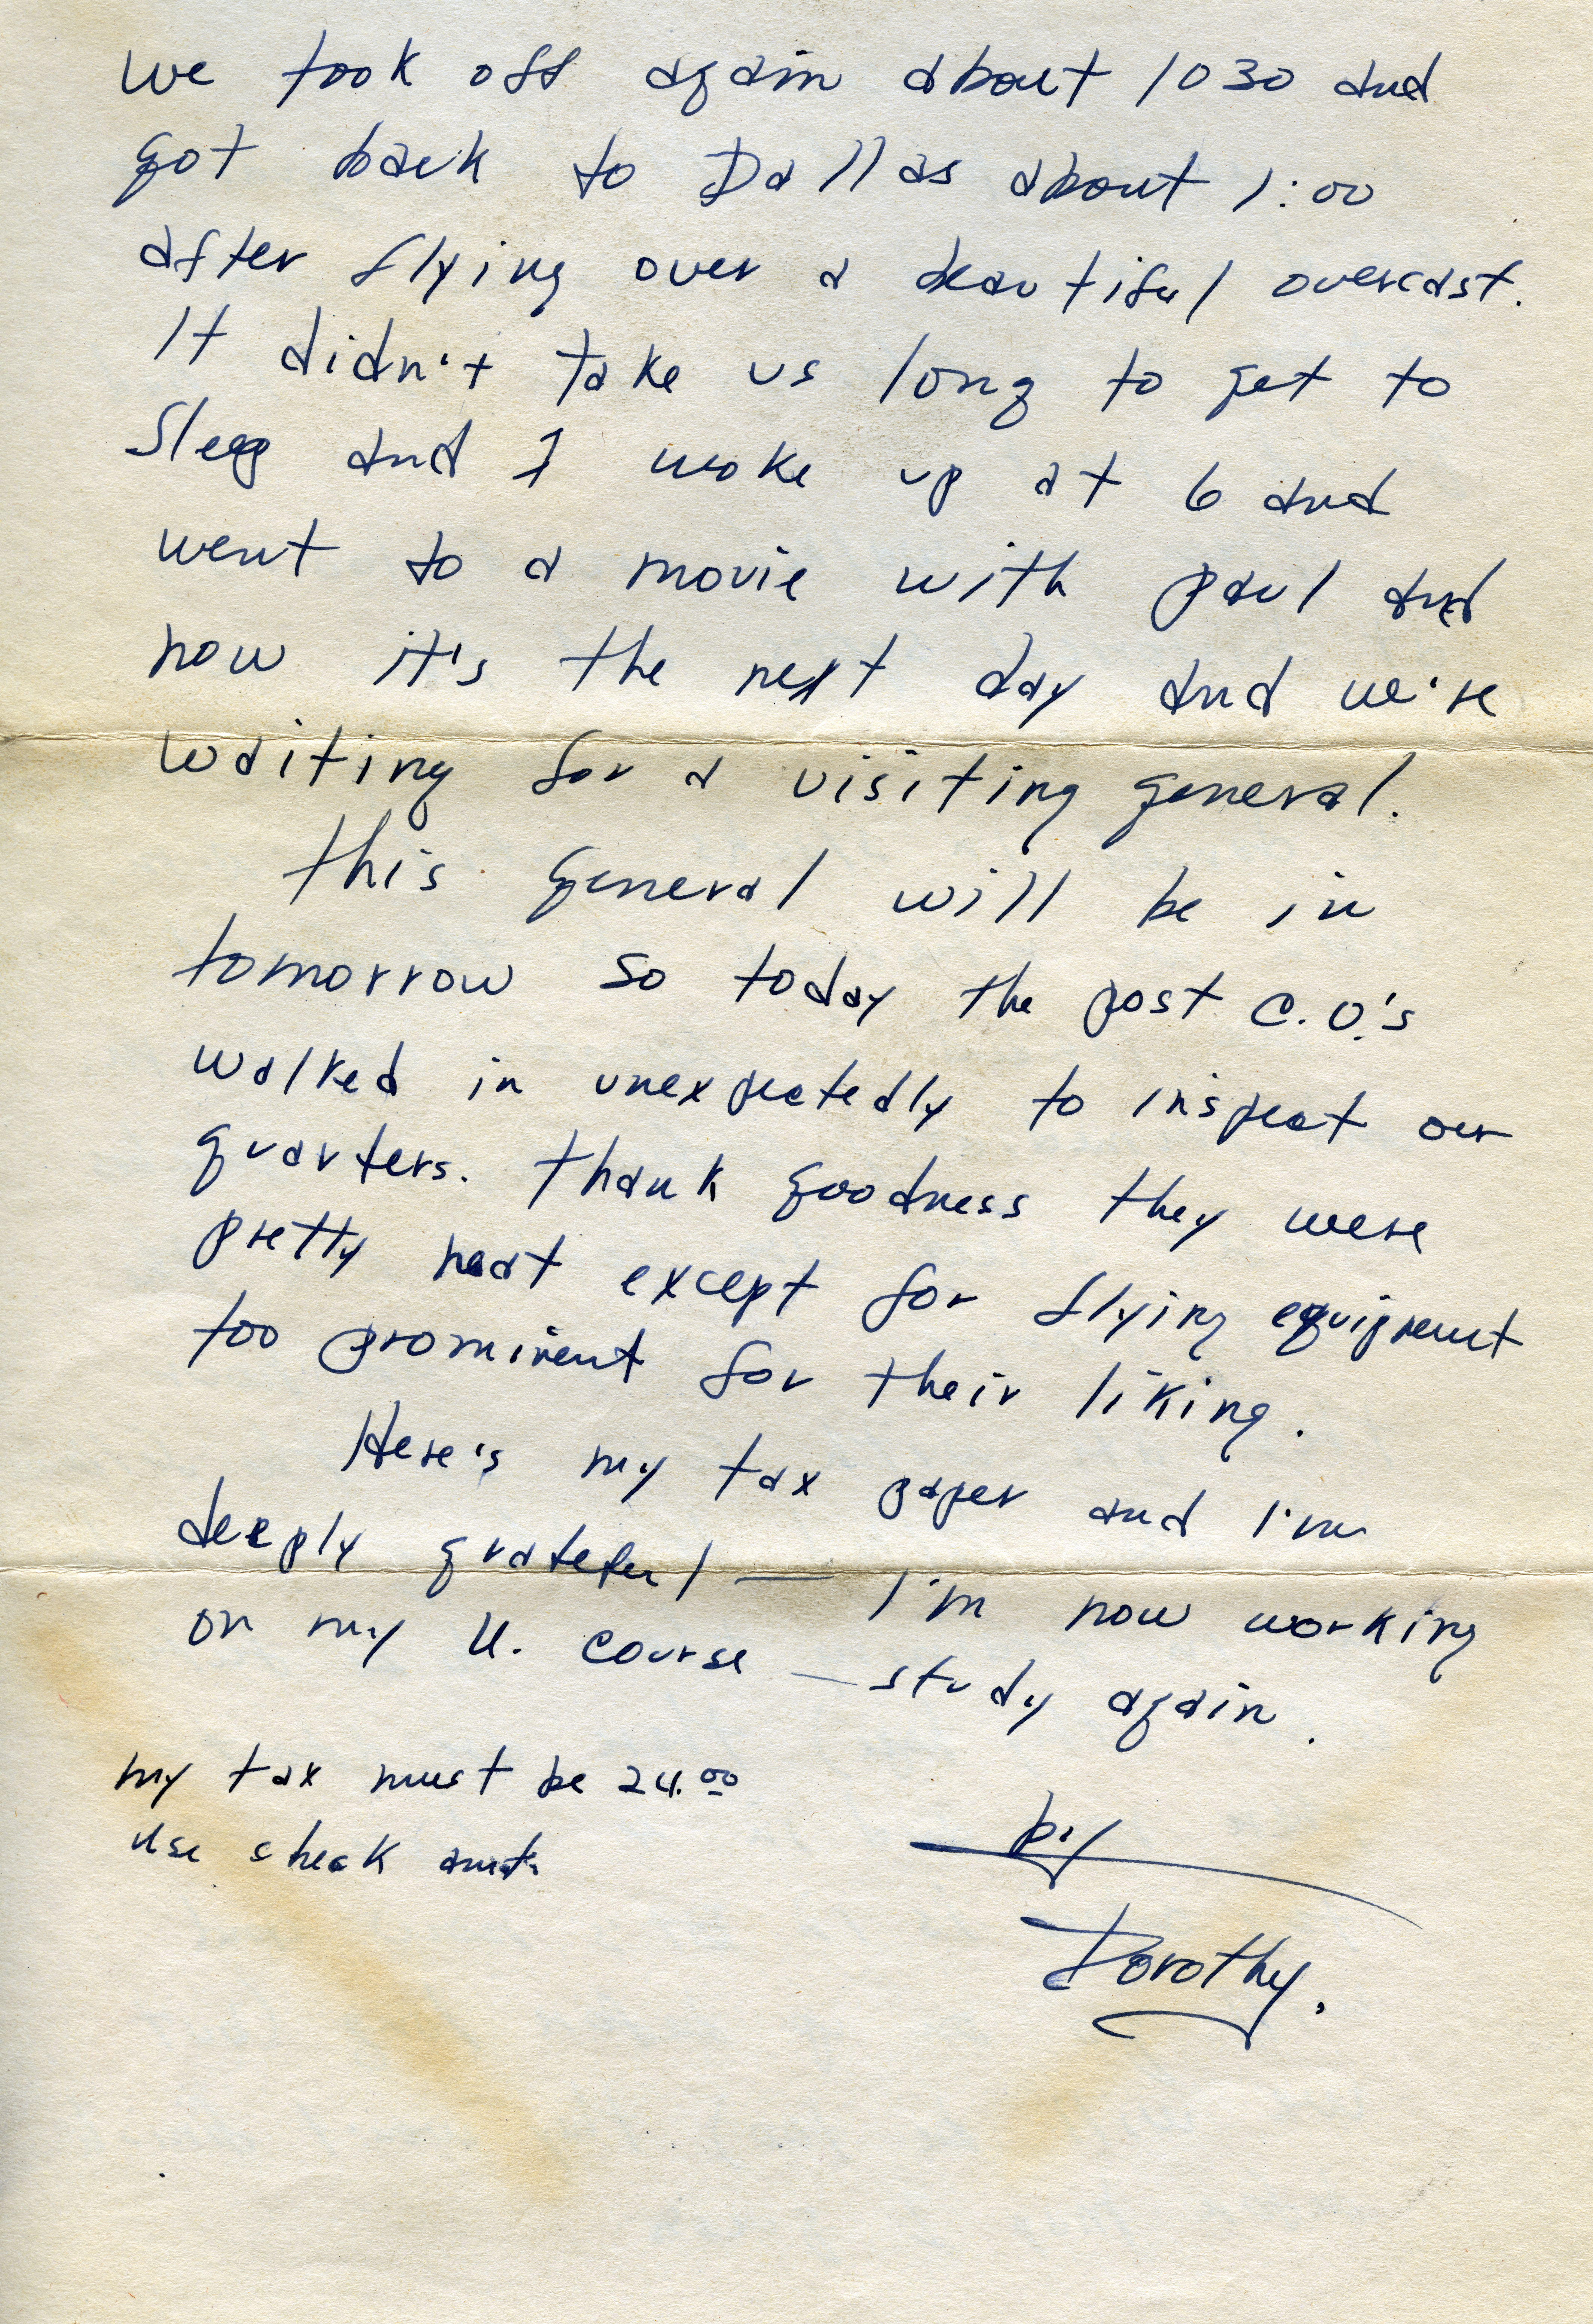 we took off again about 1030 and
got back to Dallas about 1:00
after flying over a beautiful overcast.
It didn't take us long to get to
Sleep and I woke up at 6 and
went to a movie with paul and
now it's the next day and we're
waiting for a visiting general.
this general will be in
tomorrow so today the post C.O.'s
walked in unexpectedly to inspect our
quarters. thank goodness they were
pretty neat except for flying equipment
too prominent for their liking.
Here's my tax paper and I'm
deeply grateful — I'm now working
on my U. course — study again.
my tax must be 24.00
use check amt.
by
Dorothy.